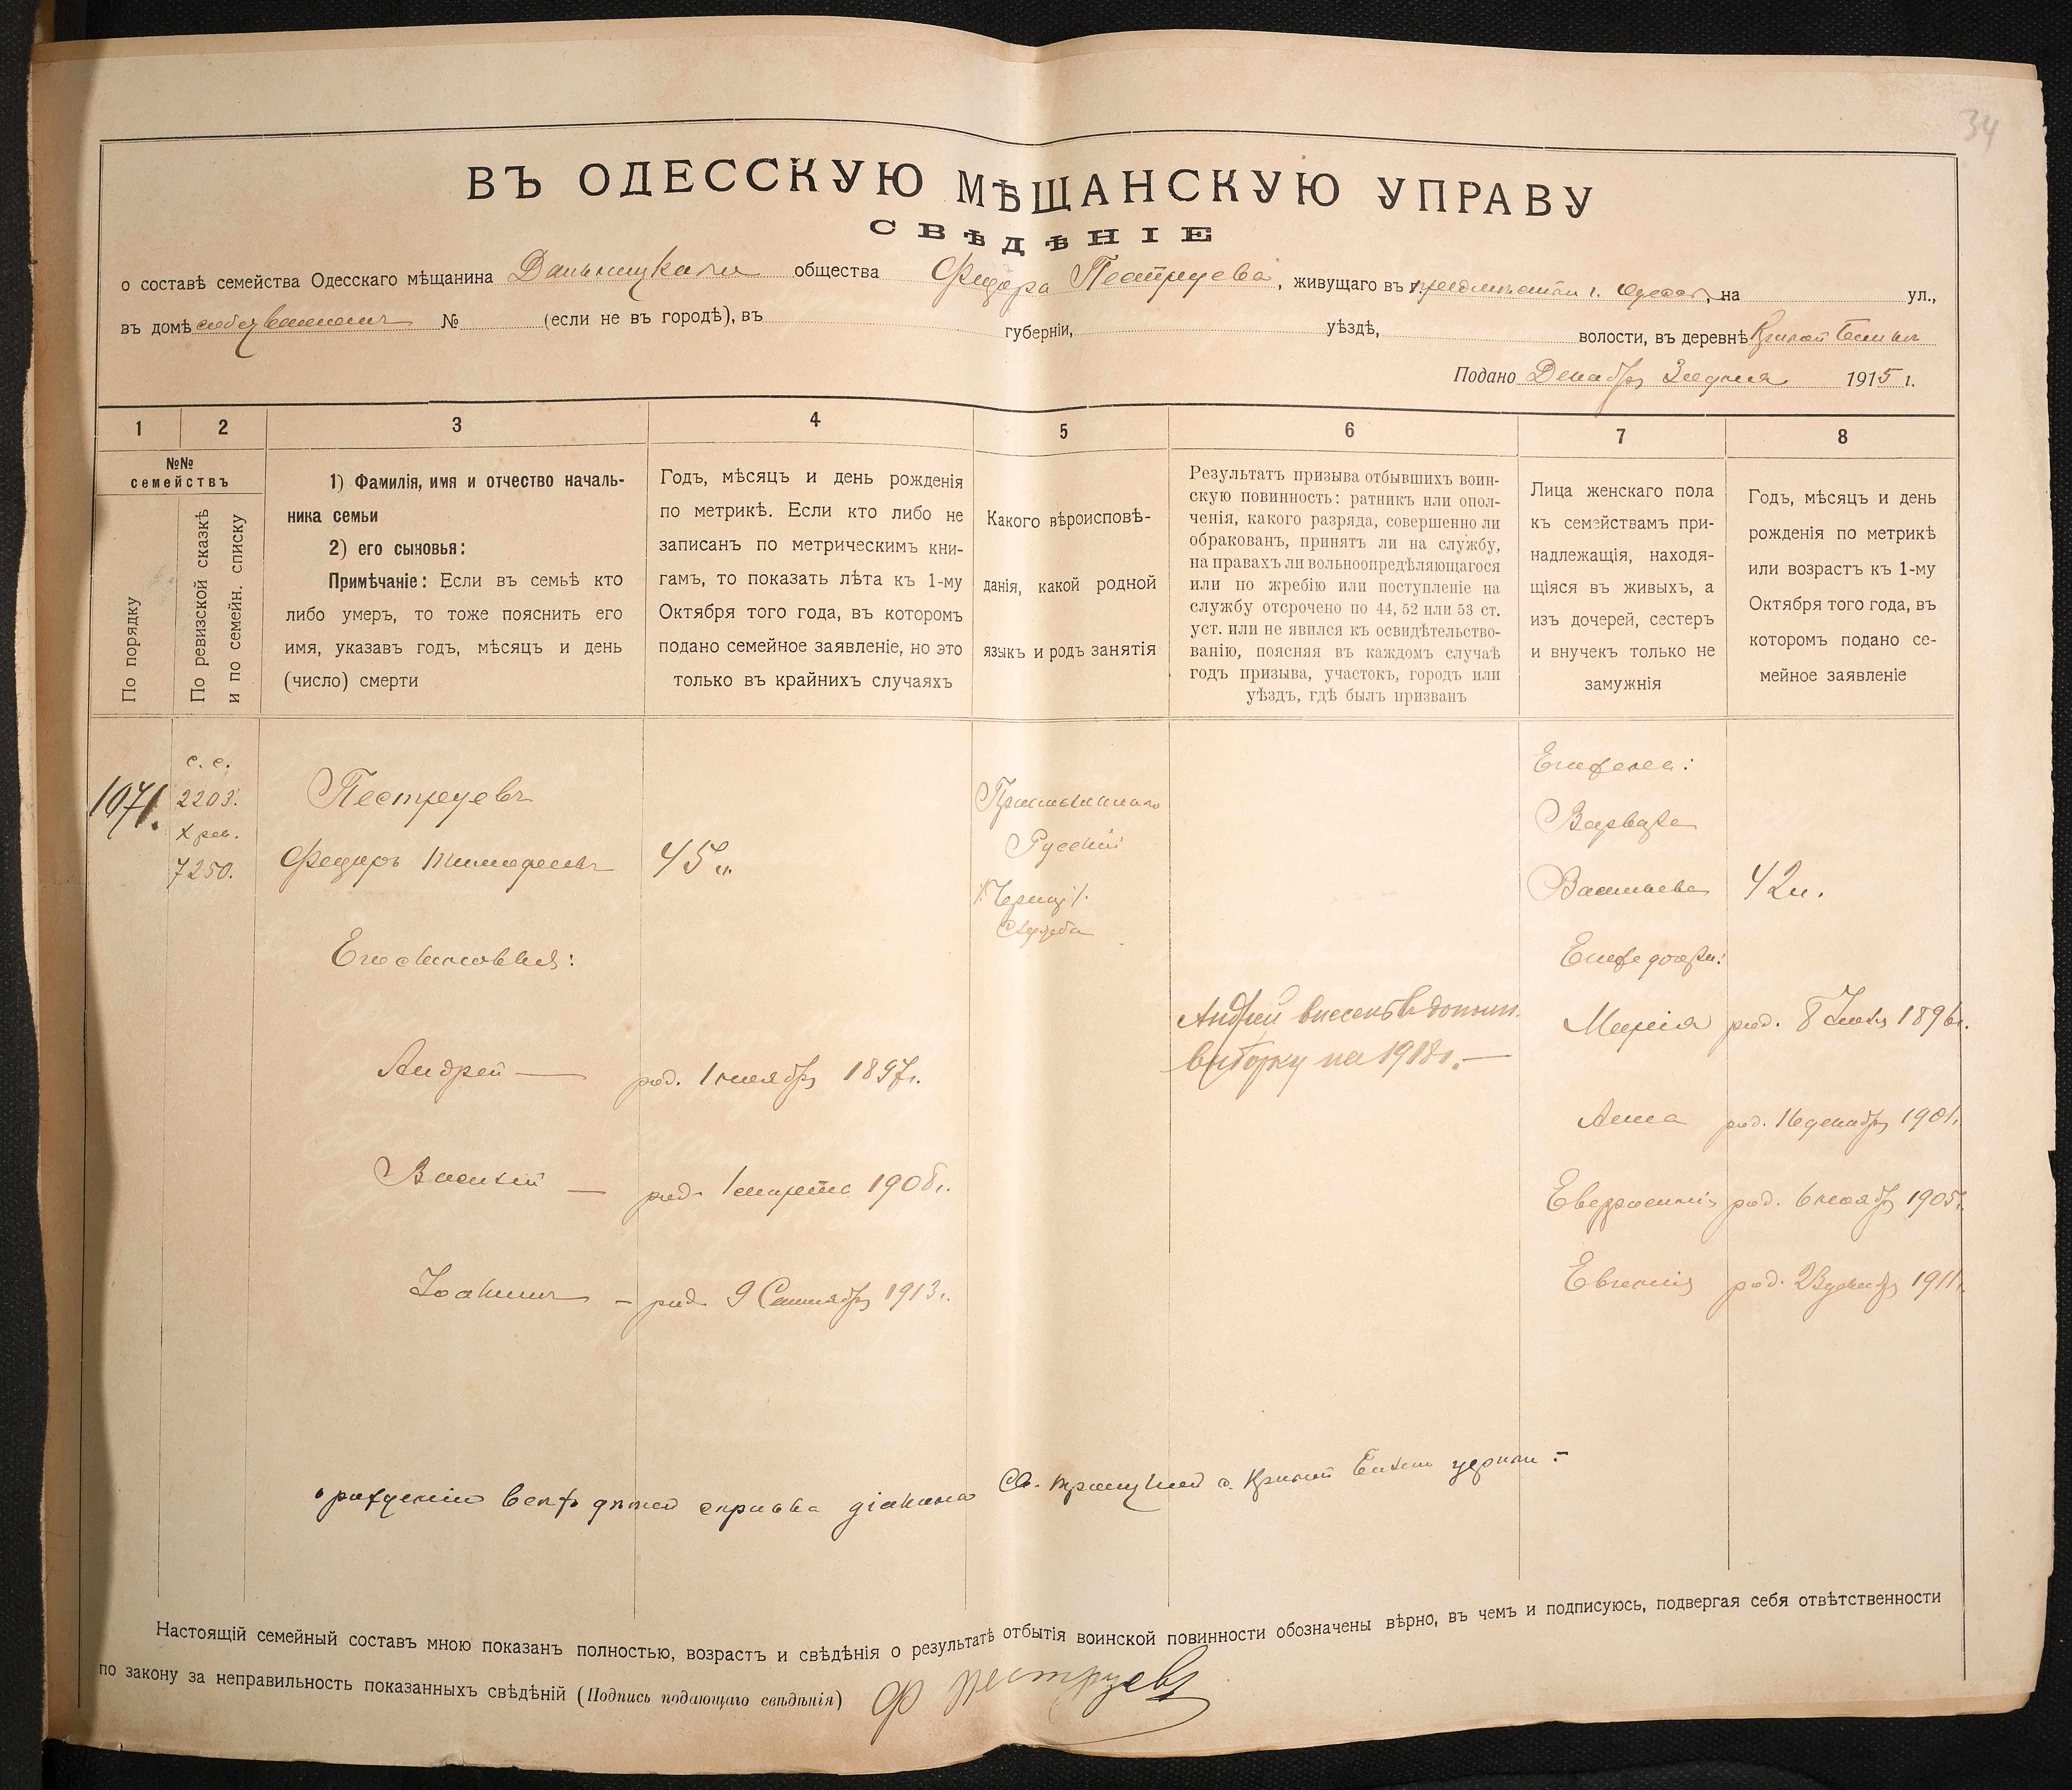 34
ВЪ ОДЕССКУЮ МѢЩАНСКУЮ УПРАВУ
СВѢДѢНІЕ
о составѣ семейства Одесскаго мѣщанина общества Федора Пеструева, живущаго въ г. Одессы, на ул.,
въ домѣ собственномъ № (если не въ городѣ), въ губерніи, уѣздѣ, волости, въ деревнѣ Кривой Балкѣ
Подано Декабря 1915 г.
1 2 3 4 5 6 7 8
№№
семействъ
По порядку
По ревизской сказкѣ
и по семейн. списку
1) Фамилія, имя и отчество началь-
ника семьи
2) его сыновья:
Примѣчаніе: Если въ семьѣ кто
либо умеръ, то тоже пояснить его
имя, указавъ годъ, мѣсяцъ и день
(число) смерти
Годъ, мѣсяцъ и день рожденія
по метрикѣ. Если кто либо не
записанъ по метрическимъ кни-
гамъ, то показать лѣта къ 1-му
Октября того года, въ которомъ
подано семейное заявленіе, но это
только въ крайнихъ случаяхъ
Какого вѣроисповѣ-
данія, какой родной
языкъ и родъ занятія
Результатъ призыва отбывшихъ воин-
скую повинность: ратникъ или опол-
ченія, какого разряда, совершенно ли
обракованъ, принятъ ли на службу,
на правахъ ли вольноопредѣляющагося
или по жребію или поступленіе на
службу отсрочено по 44, 52 или 53 ст.
уст. или не явился къ освидѣтельство-
ванію, поясняя въ каждомъ случаѣ
годъ призыва, участокъ, городъ или
уѣздъ, гдѣ былъ призванъ
Лица женскаго пола
къ семействамъ при-
надлежащія, находя-
щіяся въ живыхъ, а
изъ дочерей, сестеръ
и внучекъ только не
замужнія
Годъ, мѣсяцъ и день
рожденія по метрикѣ
или возрастъ къ 1-му
Октября того года, въ
которомъ подано се-
мейное заявленіе
1071.
с. с.
2203.
х рев.
7250.
Пеструевъ
Федоръ Тимофеевъ 45 л.
Его сыновья:
Андрей — род. 1 ноября 1897г.
Василій — род. 1 марта 1908г.
Іоакимъ — род. 9 Сентября 1913г.
Православнаго
Русскій
Служба
Андрей внесенъ въ допол.
выборку на 1918г. —
Его жена:
Варвара
Васильева 42 л.
Его дочери:
Марія род. 8 1896г.
Анна род. 16 декабря 1901г.
Евфросинія род. 6 ноября 1905г.
Евгенія род. 23 декабря 1911г.
о рожденіи всѣхъ дѣтей справка діакона Св. Троицкой с. Кривой Балки церкви. —
Настоящій семейный составъ мною показанъ полностью, возрастъ и свѣдѣнія о результатѣ отбытія воинской повинности обозначены вѣрно, въ чемъ и подписуюсь, подвергая себя отвѣтственности
по закону за неправильность показанныхъ свѣдѣній (Подпись подающаго свѣдѣнія) Ф Пеструевъ